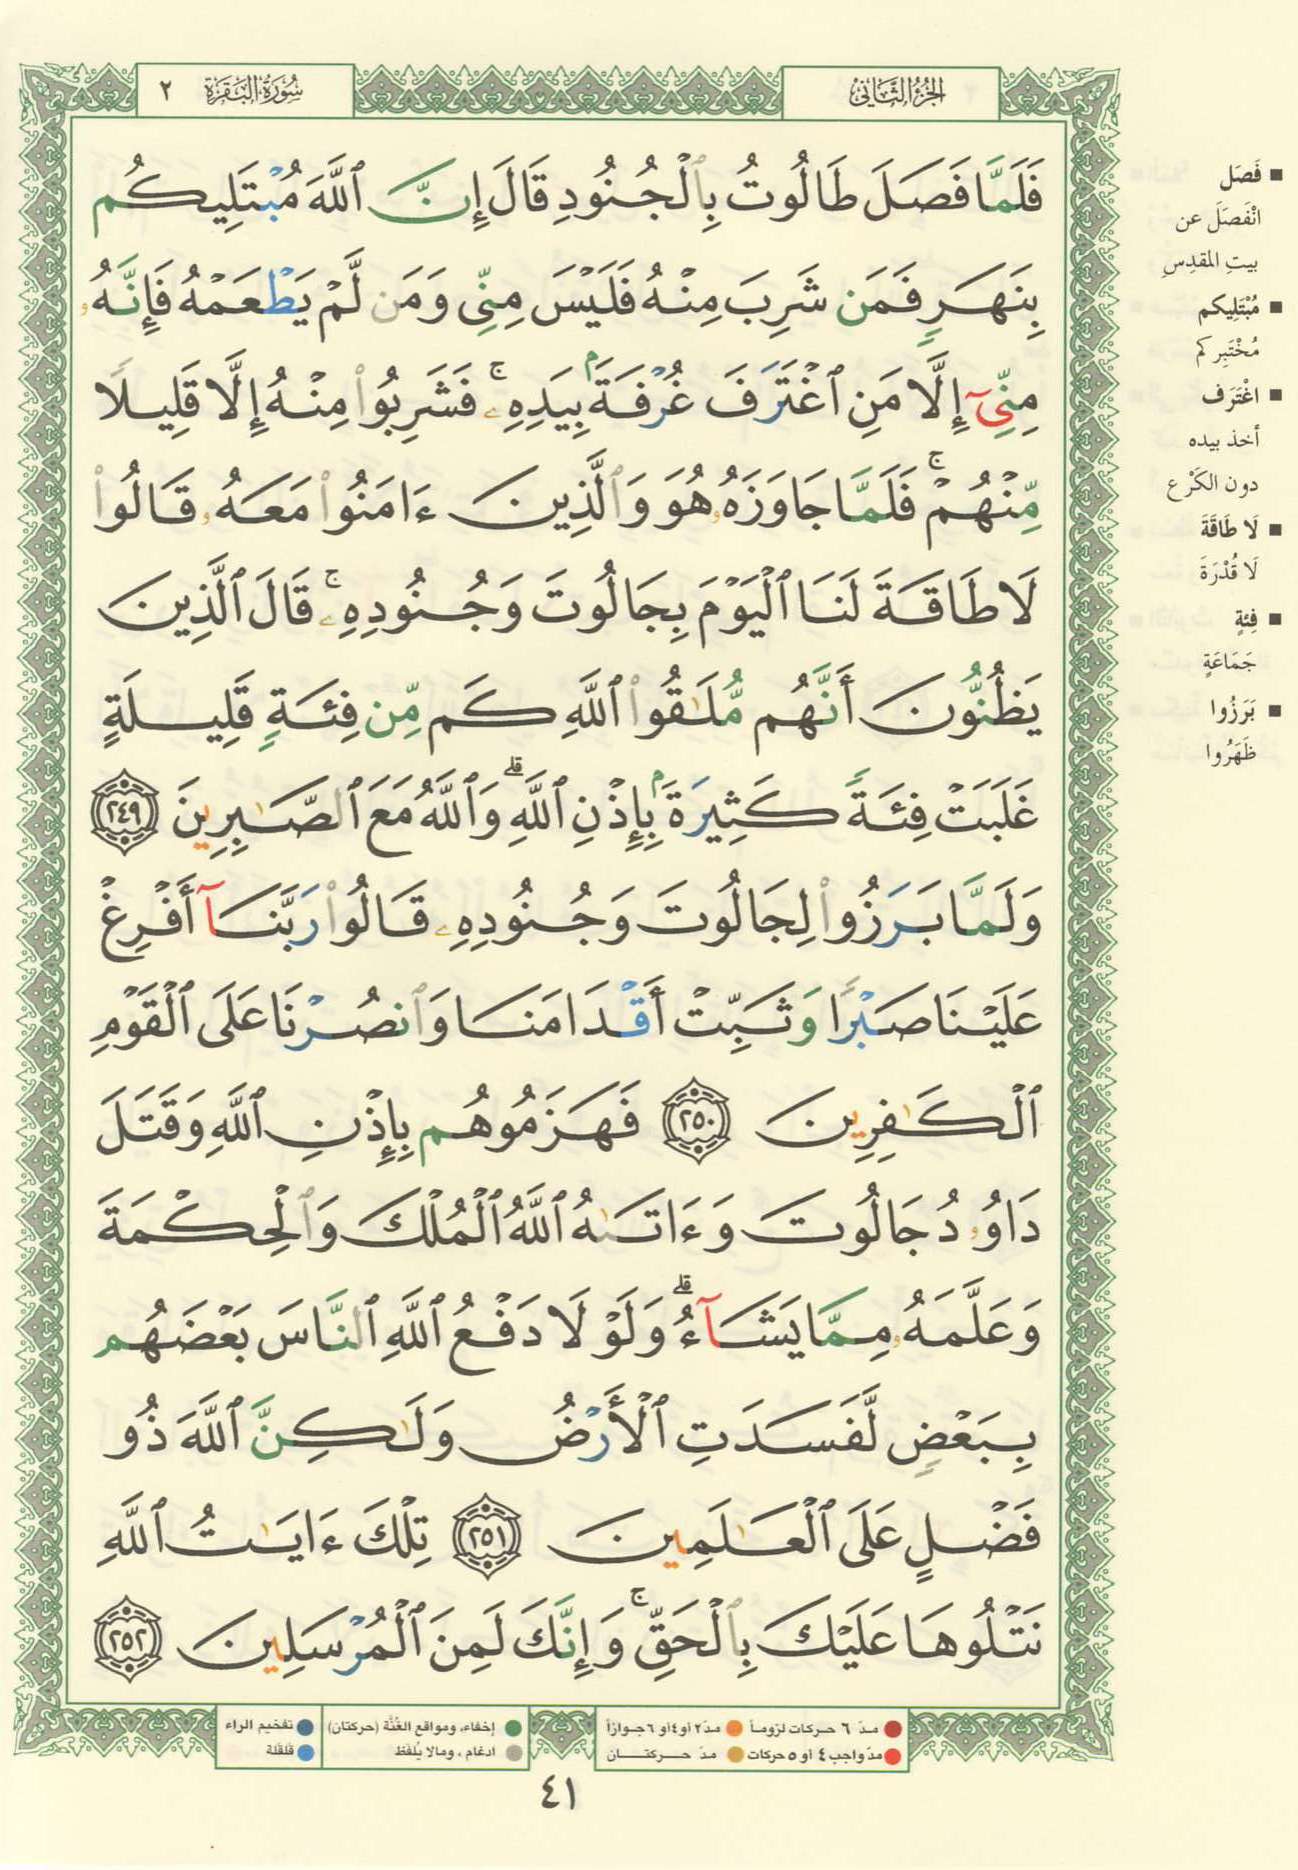 الجزء الثاني
سورة البقرة ٢
فَلَمَّا فَصَلَ طَالُوتُ بِٱلْجُنُودِ قَالَ إِنَّ ٱللَّهَ مُبْتَلِيكُم
بِنَهَرٍ فَمَن شَرِبَ مِنْهُ فَلَيْسَ مِنِّى وَمَن لَّمْ يَطْعَمْهُ فَإِنَّهُۥ
مِنِّىٓ إِلَّا مَنِ ٱغْتَرَفَ غُرْفَةًۢ بِيَدِهِۦ ۚ فَشَرِبُوا۟ مِنْهُ إِلَّا قَلِيلًا
مِّنْهُمْ ۚ فَلَمَّا جَاوَزَهُۥ هُوَ وَٱلَّذِينَ ءَامَنُوا۟ مَعَهُۥ قَالُوا۟
لَا طَاقَةَ لَنَا ٱلْيَوْمَ بِجَالُوتَ وَجُنُودِهِۦ ۚ قَالَ ٱلَّذِينَ
يَظُنُّونَ أَنَّهُم مُّلَـٰقُوا۟ ٱللَّهِ كَم مِّن فِئَةٍ قَلِيلَةٍ
غَلَبَتْ فِئَةً كَثِيرَةًۢ بِإِذْنِ ٱللَّهِ ۗ وَٱللَّهُ مَعَ ٱلصَّـٰبِرِينَ ٢٤٩
وَلَمَّا بَرَزُوا۟ لِجَالُوتَ وَجُنُودِهِۦ قَالُوا۟ رَبَّنَآ أَفْرِغْ
عَلَيْنَا صَبْرًا وَثَبِّتْ أَقْدَامَنَا وَٱنصُرْنَا عَلَى ٱلْقَوْمِ
ٱلْكَـٰفِرِينَ ٢٥٠ فَهَزَمُوهُم بِإِذْنِ ٱللَّهِ وَقَتَلَ
دَاوُۥدُ جَالُوتَ وَءَاتَىٰهُ ٱللَّهُ ٱلْمُلْكَ وَٱلْحِكْمَةَ
وَعَلَّمَهُۥ مِمَّا يَشَآءُ ۗ وَلَوْلَا دَفْعُ ٱللَّهِ ٱلنَّاسَ بَعْضَهُم
بِبَعْضٍ لَّفَسَدَتِ ٱلْأَرْضُ وَلَـٰكِنَّ ٱللَّهَ ذُو
فَضْلٍ عَلَى ٱلْعَـٰلَمِينَ ٢٥١ تِلْكَ ءَايَـٰتُ ٱللَّهِ
نَتْلُوهَا عَلَيْكَ بِٱلْحَقِّ ۚ وَإِنَّكَ لَمِنَ ٱلْمُرْسَلِينَ ٢٥٢
■ فَصَلَ
انْفَصَلَ عن
بيتِ المقدِسِ
■ مُبْتَلِيكم
مُخْتَبِركم
■ اغْتَرَف
أخذ بيده
دون الكَرْع
■ لَا طَاقَةَ
لَا قُدْرَةَ
■ فِئةٍ
جَمَاعَةٍ
■ بَرَزُوا
ظَهَرُوا
مدّ ٦ حركات لزوماً
مدّ ٢ أو ٤ أو ٦ جوازاً
إخفاء، ومواقع الغُنَّة (حركتان)
تفخيم الراء
مدّ واجب ٤ أو ٥ حركات
مدّ حركتان
ادغام، ومالا يُلفَظ
قلقلة
٤١